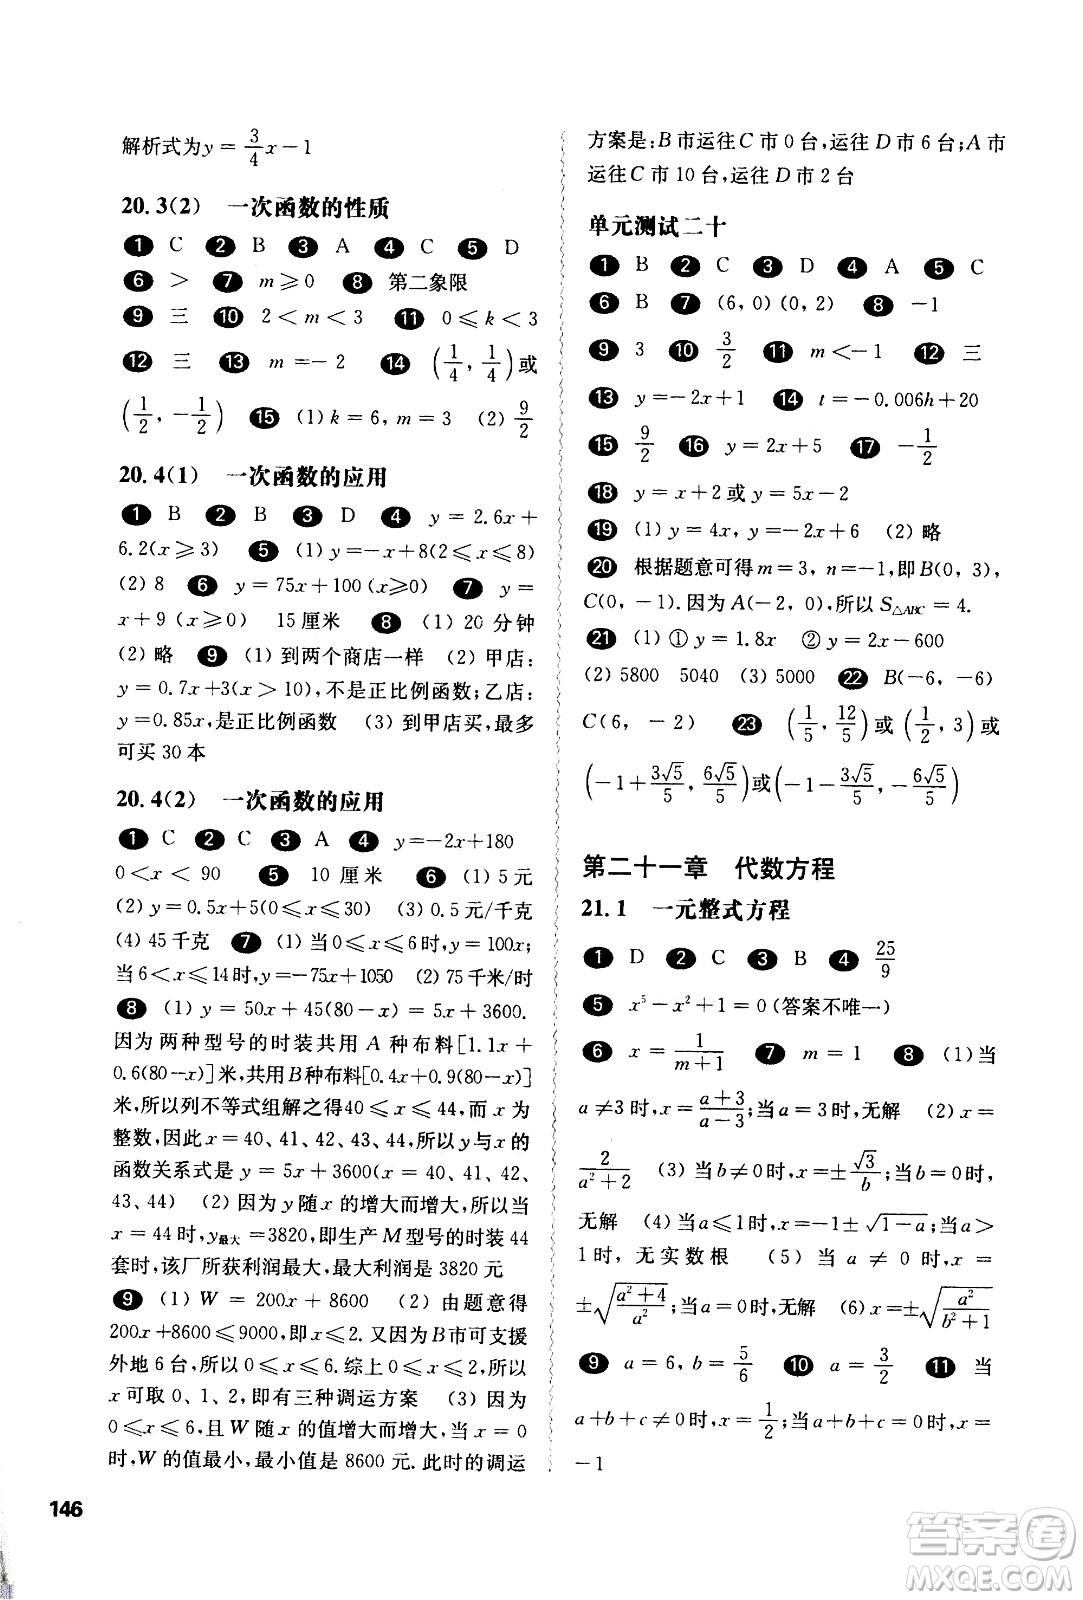 解析式为y = 3/4 x − 1
20.3(2) 一次函数的性质
❶ C ❷ B ❸ A ❹ C ❺ D
❻ > ❼ m⩾0 ❽ 第二象限
❾ 三 ❿ 2<m<3 ⓫ 0⩽k<3
⓬ 三 ⓭ m=−2 ⓮ (1/4, 1/4)或
(1/2, −1/2) ⓯ (1) k = 6, m = 3 (2) 9/2
20.4(1) 一次函数的应用
❶ B ❷ B ❸ D ❹ y = 2.6x +
6.2(x⩾3) ❺ (1) y=−x+8(2⩽x⩽8)
(2) 8 ❻ y = 75x+100 (x⩾0) ❼ y =
x+9 (x⩾0) 15厘米 ❽ (1) 20 分钟
(2) 略 ❾ (1) 到两个商店一样 (2) 甲店:
y=0.7x+3(x>10),不是正比例函数;乙店:
y=0.85x,是正比例函数 (3) 到甲店买,最多
可买 30 本
20.4(2) 一次函数的应用
❶ C ❷ C ❸ A ❹ y=−2x+180
0<x< 90 ❺ 10 厘米 ❻ (1) 5元
(2) y = 0.5x+5(0⩽x⩽30) (3) 0.5 元/千克
(4) 45千克 ❼ (1) 当 0⩽x⩽6时,y=100x;
当 6<x⩽14时,y=−75x+1050 (2) 75千米/时
❽ (1) y = 50x + 45(80 − x) = 5x + 3600.
因为两种型号的时装共用 A 种布料[1.1x +
0.6(80−x)]米,共用B种布料[0.4x+0.9(80−x)]
米,所以列不等式组解之得40⩽x⩽44,而 x 为
整数,因此 x = 40、41、42、43、44,所以 y 与 x 的
函数关系式是 y = 5x + 3600(x = 40、41、42、
43、44) (2) 因为 y 随 x 的增大而增大,所以当
x = 44 时,y最大 =3820,即生产 M 型号的时装 44
套时,该厂所获利润最大,最大利润是 3820 元
❾ (1) W = 200x + 8600 (2) 由题意得
200x+8600⩽9000,即x⩽2. 又因为B市可支援
外地 6 台,所以 0⩽x⩽6. 综上 0⩽x⩽2,所以
x 可取 0、1、2,即有三种调运方案 (3) 因为
0⩽x⩽6,且 W 随 x 的值增大而增大,当 x = 0
时,W 的值最小,最小值是 8600 元. 此时的调运
方案是:B 市运往 C 市 0 台,运往 D 市 6 台;A 市
运往C 市 10 台,运往 D 市 2 台
单元测试二十
❶ B ❷ C ❸ D ❹ A ❺ C
❻ B ❼ (6, 0) (0, 2) ❽ −1
❾ 3 ❿ 3/2 ⓫ m<−1 ⓬ 三
⓭ y=−2x+1 ⓮ t=−0.006h+20
⓯ 9/2 ⓰ y = 2x+5 ⓱ −1/2
⓲ y = x+2 或 y = 5x−2
⓳ (1) y = 4x, y =−2x+6 (2) 略
⓴ 根据题意可得 m = 3, n =−1,即 B(0, 3),
C(0, −1). 因为 A(−2, 0),所以 S△ABC = 4.
㉑ (1) ① y = 1.8x ② y = 2x−600
(2) 5800 5040 (3) 5000 ㉒ B(−6, −6)
C(6, −2) ㉓ (1/5, 12/5)或 (1/2, 3) 或
(−1+3√5/5, 6√5/5)或(−1−3√5/5, −6√5/5)
第二十一章 代数方程
21.1 一元整式方程
❶ D ❷ C ❸ B ❹ 25/9
❺ x⁵−x²+1 = 0 (答案不唯一)
❻ x = 1/(m+1) ❼ m = 1 ❽ (1)当
a ≠3 时,x=(a+3)/(a−3);当a = 3时,无解 (2) x =
2/(a²+2) (3) 当 b≠0时,x=±√3/b;当 b=0时,
无解 (4) 当a⩽1时,x=−1±√(1−a);当a>
1时,无实数根 (5) 当 a ≠ 0 时,x =
±√((a²+4)/a²);当a = 0时,无解 (6) x=±√(a²/(b²+1))
❾ a = 6, b = 5/6 ❿ a = 3/2 ⓫ 当
a+b+c≠0时,x=1/2;当a+b+c = 0时,x =
−1
146
答案圈
MXQE.COM